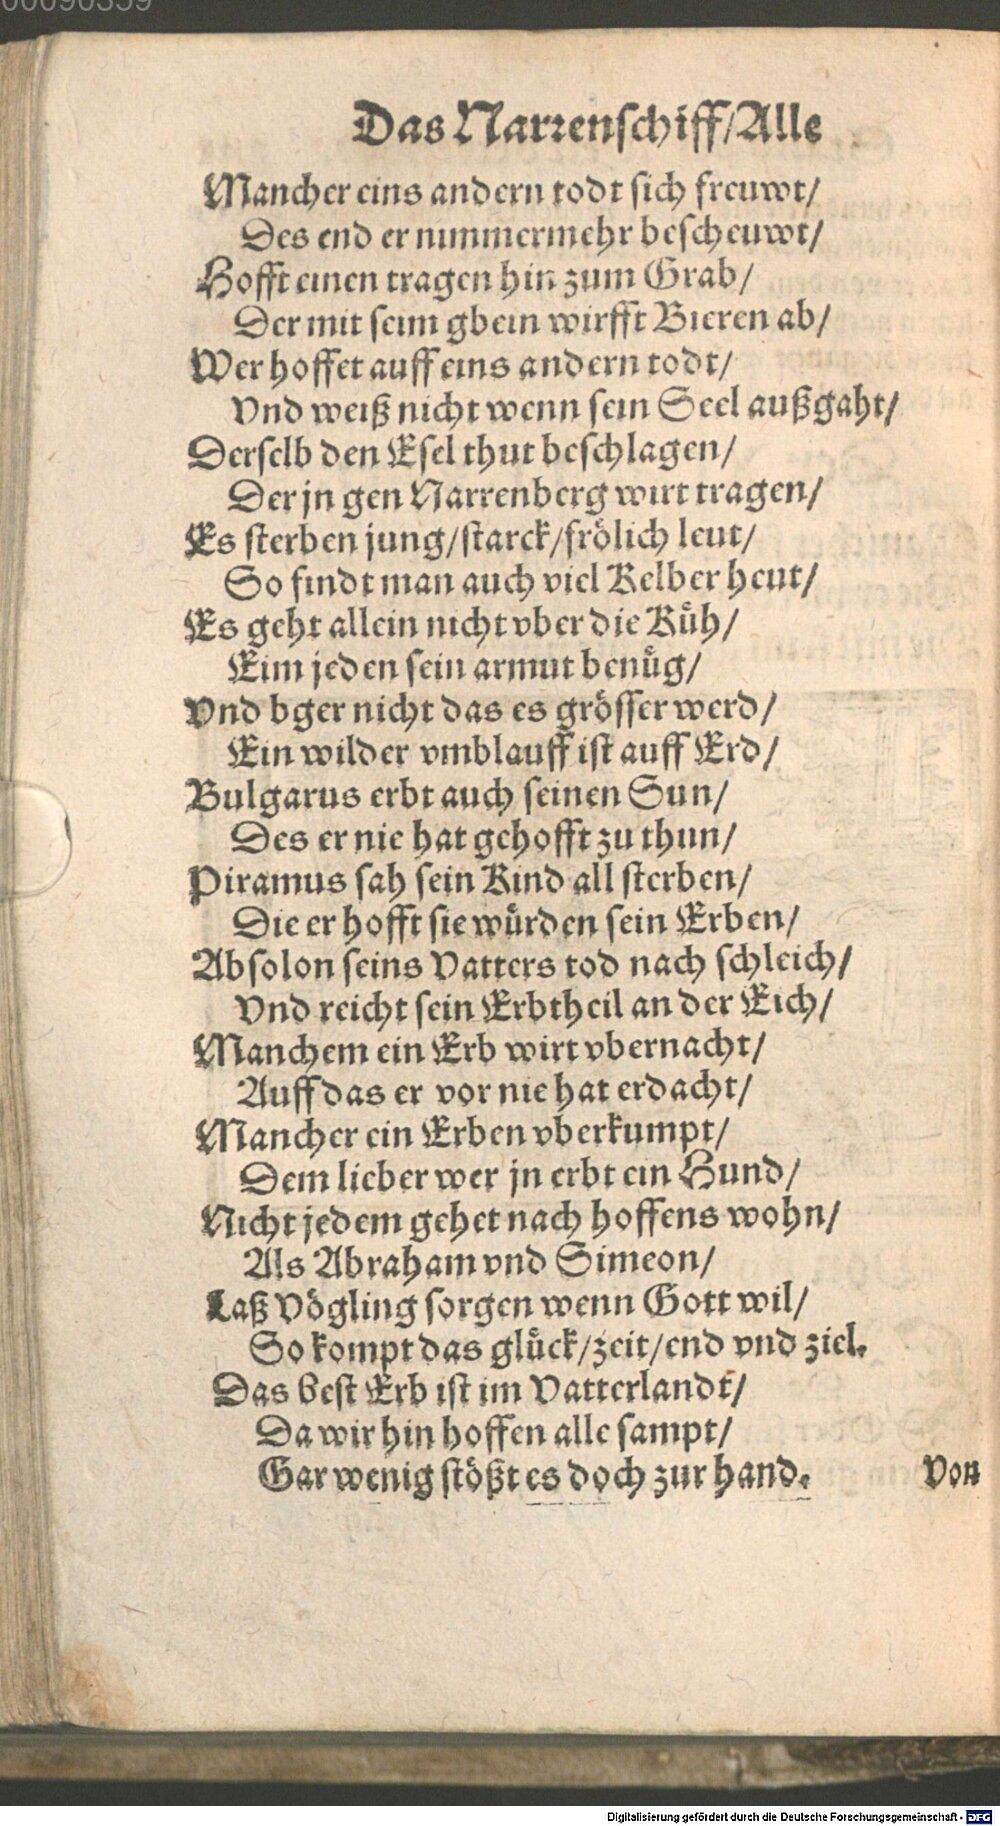 00090359
Das Narrenschiff/Alle
Mancher eins andern todt sich freuwt/
Des end er nimmermehr bescheuwt/
Hofft einen tragen hin zum Grab/
Der mit seim gbein wirfft Bieren ab/
Wer hoffet auff eins andern todt/
Vnd weiß nicht wenn sein Seel außgaht/
Derselb den Esel thut beschlagen/
Der jn gen Narrenberg wirt tragen/
Es sterben jung/starck/frölich leut/
So findt man auch viel Kelber heut/
Es geht allein nicht vber dieKüh/
Eim jeden sein armut benüg/
Vnd bger nicht das es grösser werd/
Ein wilder vmblauff ist auff Erd/
Bulgarus erbt auch seinen Sun/
Des er nie hat gehofft zu thun/
Piramus sah sein Kind all sterben/
Die er hofft sie würden sein Erben/
Absolon seins Vatters tod nach schleich/
Vnd reicht sein Erbtheil an der Eich/
Manchem ein Erb wirt vbernacht/
Auff das er vor nie hat erdacht/
Mancher ein Erben vberkumpt/
Dem lieber wer jn erbt ein Hund/
Nicht jedem gehet nach hoffens wohn/
Als Abraham vnd Simeon/
Laß Vögling sorgen wenn Gott wil/
So kompt das glück/zeit/end vnd ziel.
Das best Erb ist im Vatterlandt/
Da wir hin hoffen alle sampt/
Gar wenig stößt es doch zur hand.
Von
Digitalisierung gefördert durch die Deutsche Forschungsgemeinschaft - DFG